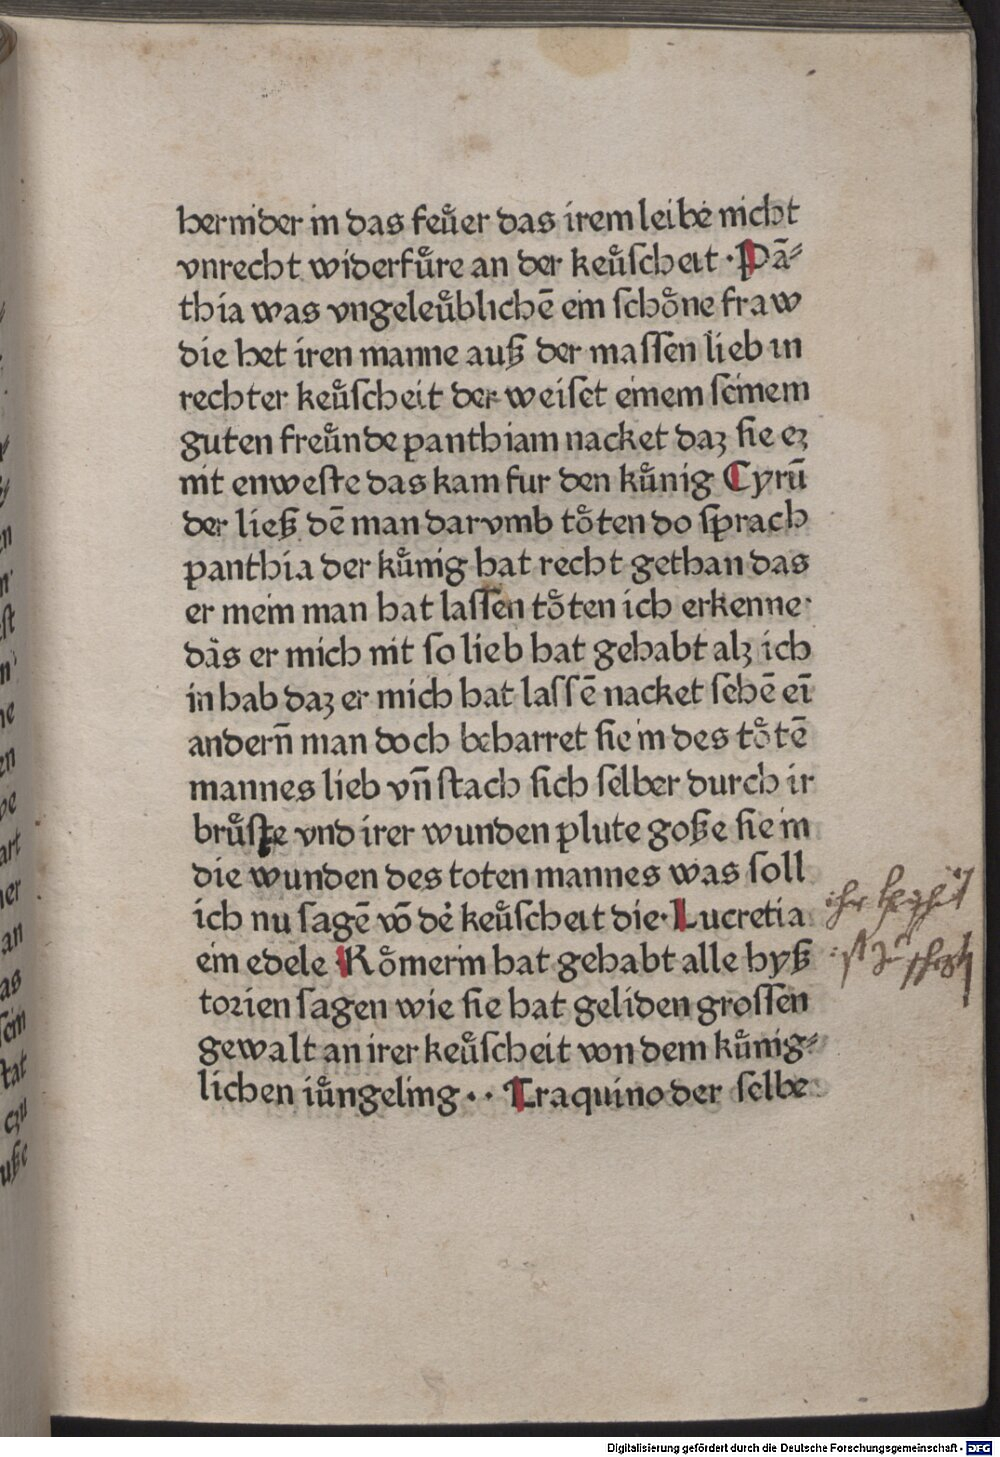 hernider in das feůer das irem leibe nicht
vnrecht widerfůre an der keůscheit · Pā⸗
thia was vngeleůblichē ein schőne fraw
die het iren manne auß der massen lieb in
rechter keůscheit der weiset einem seinem
guten freůnde panthiam nacket daz sie ez
nit enweste das kam fur den kůnig Cyrū
der ließ dē man darvmb tőten do sprach
panthia der kůnig hat recht gethan das
er mein man hat lassen tőten ich erkenne·
das er mich nit so lieb hat gehabt alz ich
in hab daz er mich hat lassē nacket sehē eī
andern̄ man doch beharret sie in des tőtē
mannes lieb vn̄ stach sich selber durch ir
brůste vnd irer wunden plute goße sie in
die wunden des toten mannes was soll
ich nu sagē vō dē keůscheit die· Lucretia
ein edele Rőmerin hat gehabt alle hyß
torien sagen wie sie hat geliden grossen
gewalt an irer keůscheit von dem kůnig⸗
lichen iůngeling · · Traquino der selbe
ihr
ist